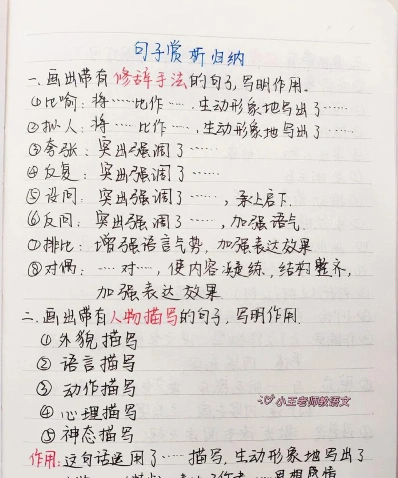 句子赏析归纳
一、画出带有修辞手法的句子,写明作用。
①比喻:将……比作……,生动形象地写出了……
②拟人:将……比作……,生动形象地写出了……
③夸张:突出强调了……
④反复:突出强调了……
⑤设问:突出强调了……,承上启下.
⑥反问:突出强调了……,加强语气.
⑦排比:增强语言气势,加强表达效果
⑧对偶:……对……,使内容凝练,结构整齐,
加强表达效果
二、画出带有人物描写的句子,写明作用.
①外貌描写
②语言描写
③动作描写
④心理描写
⑤神态描写
小王老师教语文
作用:这句话运用了……描写,生动形象地写出了